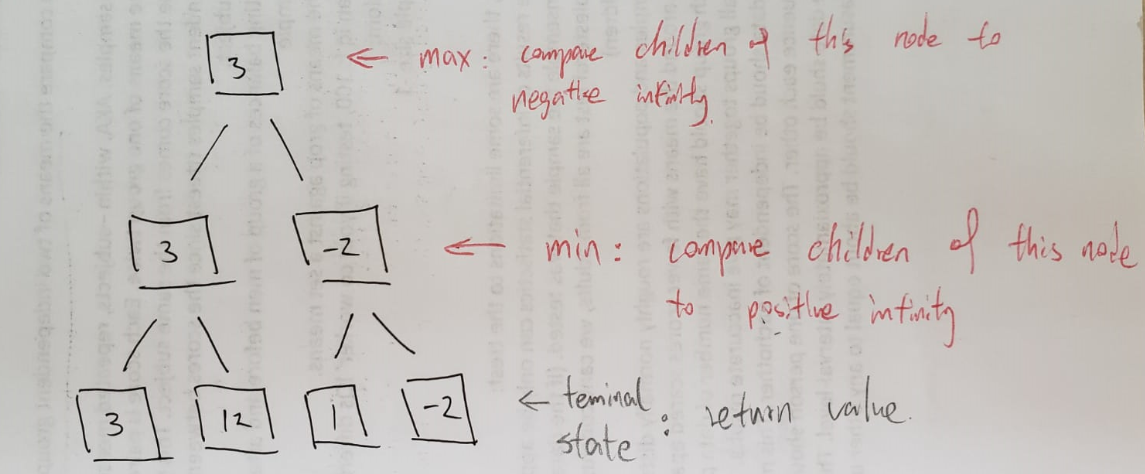 3
← max: compare children of this node to
negative infinity.
3
-2
← min: compare children of this node
to positive infinity
3
12
1
-2
← teminal
state : return value.